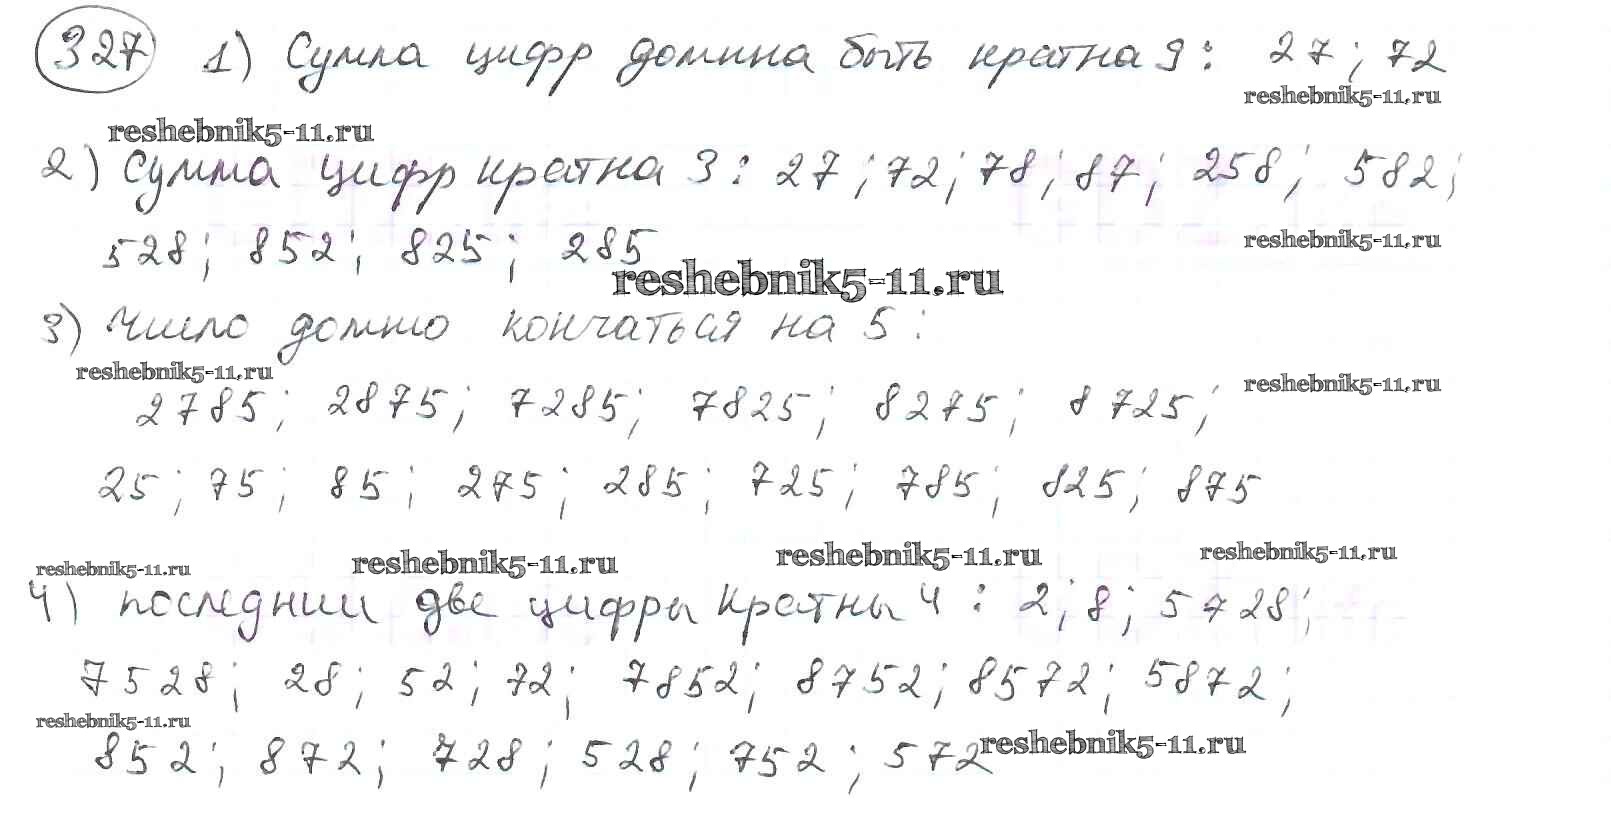 327 1) Сумма цифр должна быть кратна 9: 27; 72
reshebnik5-11.ru
reshebnik5-11.ru
2) Сумма цифр кратна 3: 27; 72; 78; 87; 258; 582;
528; 852; 825; 285
reshebnik5-11.ru
reshebnik5-11.ru
3) Число должно кончаться на 5:
reshebnik5-11.ru
reshebnik5-11.ru
2785; 2875; 7285; 7825; 8275; 8725;
25; 75; 85; 275; 285; 725; 785; 825; 875
reshebnik5-11.ru reshebnik5-11.ru reshebnik5-11.ru reshebnik5-11.ru
4) последнии две цифры кратны 4: 2; 8; 5728;
7528; 28; 52; 72; 7852; 8752; 8572; 5872;
reshebnik5-11.ru
852; 872; 728; 528; 752; 572
reshebnik5-11.ru